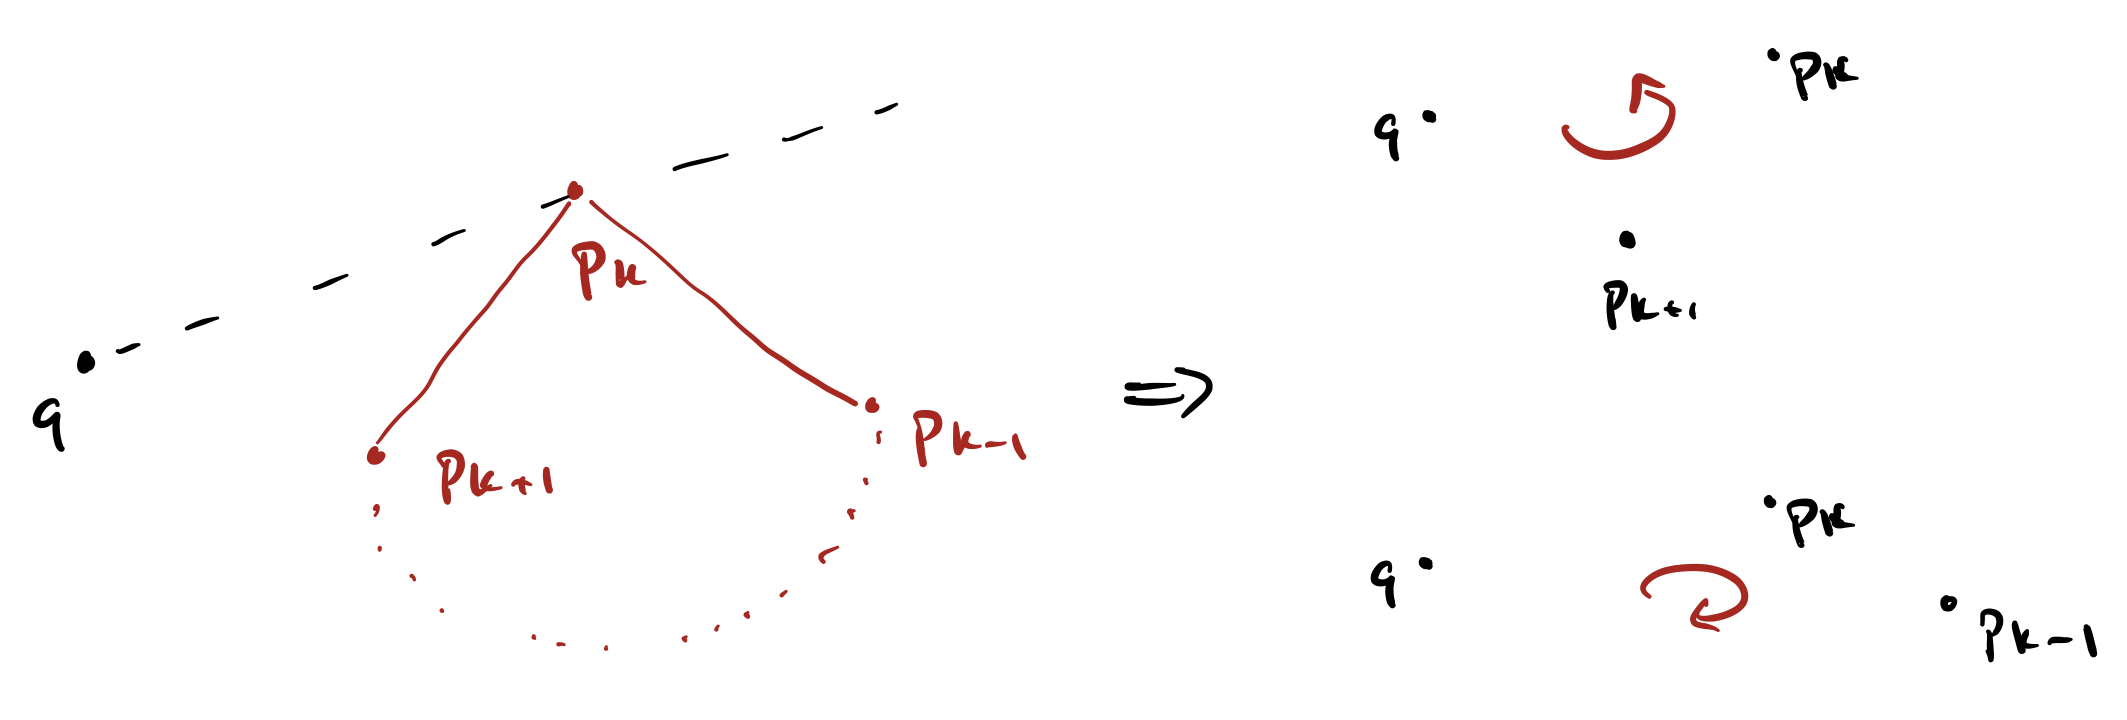 q
Pk
Pk+1
Pk-1
⇒
q
Pk
Pk+1
q
Pk
Pk-1